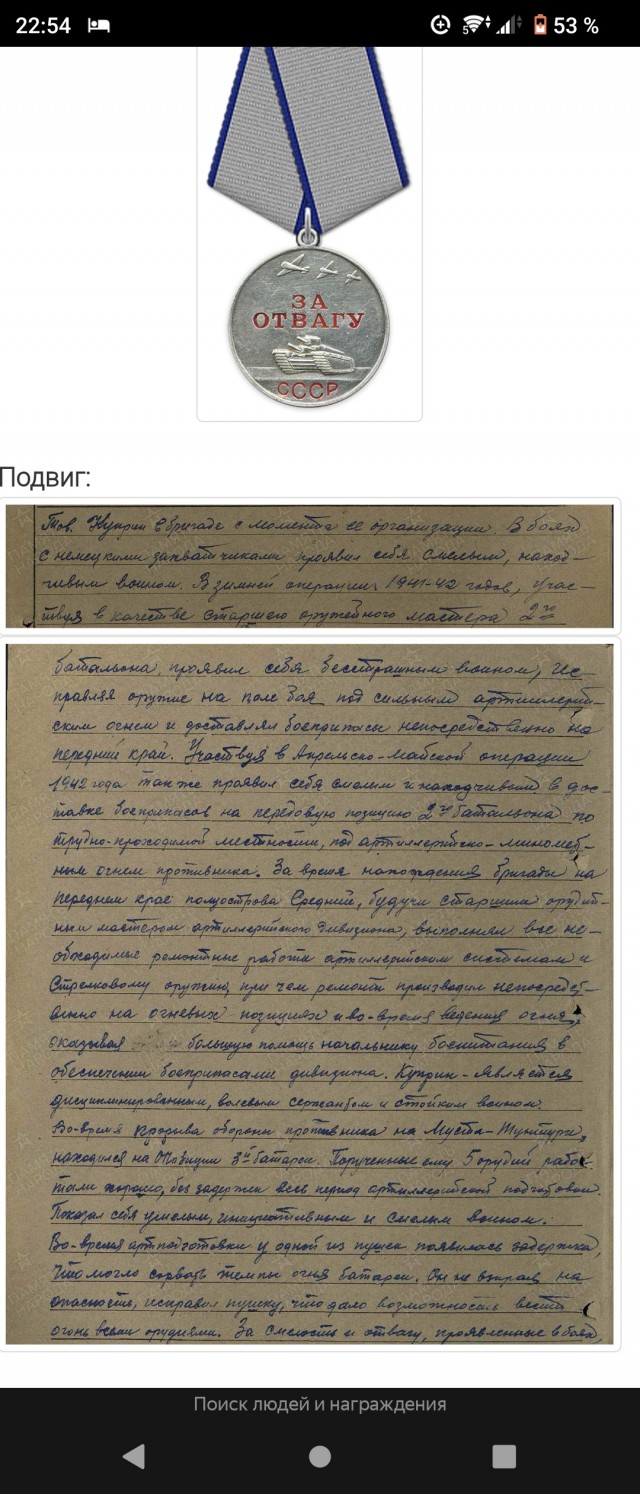 22:54
5
53 %
ЗА
ОТВАГУ
СССР
Подвиг:
Тов. Куприн в бригаде с момента ее организации. В боях
с немецкими захватчиками проявил себя смелым, наход-
чивым воином. В зимней операции 1941-42 годов, учас-
твуя в качестве старшего оружейного мастера 2го
батальона, проявил себя бесстрашным воином, ис-
правляя оружие на поле боя под сильным артиллерий-
ским огнем и доставлял боеприпасы непосредственно на
передний край. Участвуя в Апрельско-майской операции
1942 года так же проявил себя смелым и находчивым в дос-
тавке боеприпасов на передовую позицию 2го батальона по
трудно-проходимой местности, под артиллерийско-миномет-
ным огнем противника. За время нахождения бригады на
переднем крае полуострова Средний, будучи старшим орудий-
ным мастером артиллерийского дивизиона, выполнял все не-
обходимые ремонтные работы артиллерийским системам и
стрелковому оружию, при чем ремонт производил непосредст-
венно на огневых позициях и во-время ведения огня,
оказывая большую помощь начальнику боепитания в
обеспечении боеприпасами дивизиона. Куприн - является
дисциплинированным, волевым сержантом и стойким воином.
Во-время прорыва обороны противника на Муста-Тунтури,
находился на ОПозиции 3й батареи. Порученные ему 5 орудий рабо-
тали хорошо, без задержек весь период артиллерийской подготовки.
Показал себя умелым, инициативным и смелым воином.
Во-время артподготовки у одной из пушек появилась задержка,
что могло сорвать темпы огня батареи. Он не взирая на
опасность, исправил пушку, что дало возможность вести
огонь всеми орудиями. За смелость и отвагу, проявленные в боях,
Поиск людей и награждения